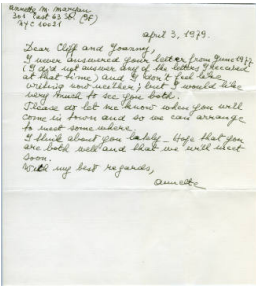 Annette M.
301 East 63 St. (8E)
NYC 10021
April 3, 1979.
Dear Cliff and
I never answered your letter from June 1977
(I did not answer any of the letters I received
at that time) and I don't feel like
writing now neither; but I would like
very much to see you both.
Please do let me know when you will
come in town and so we can arrange
to meet some where.
I think about you lately. Hope that you
are both well and that we will meet
soon.
With my best regards,
Annette